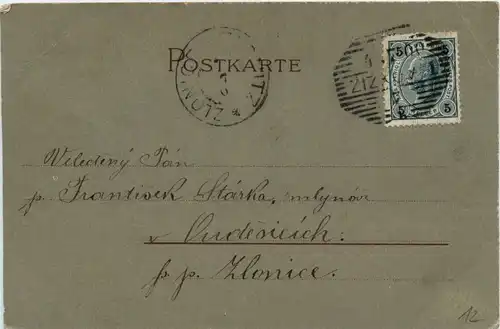 POSTKARTE
ZLONITZ
ZIZ
5 5
5
Weledený Pán
p. František Stárka, mlynář
v Ouděsicích.
p. p. Zlonice.
12